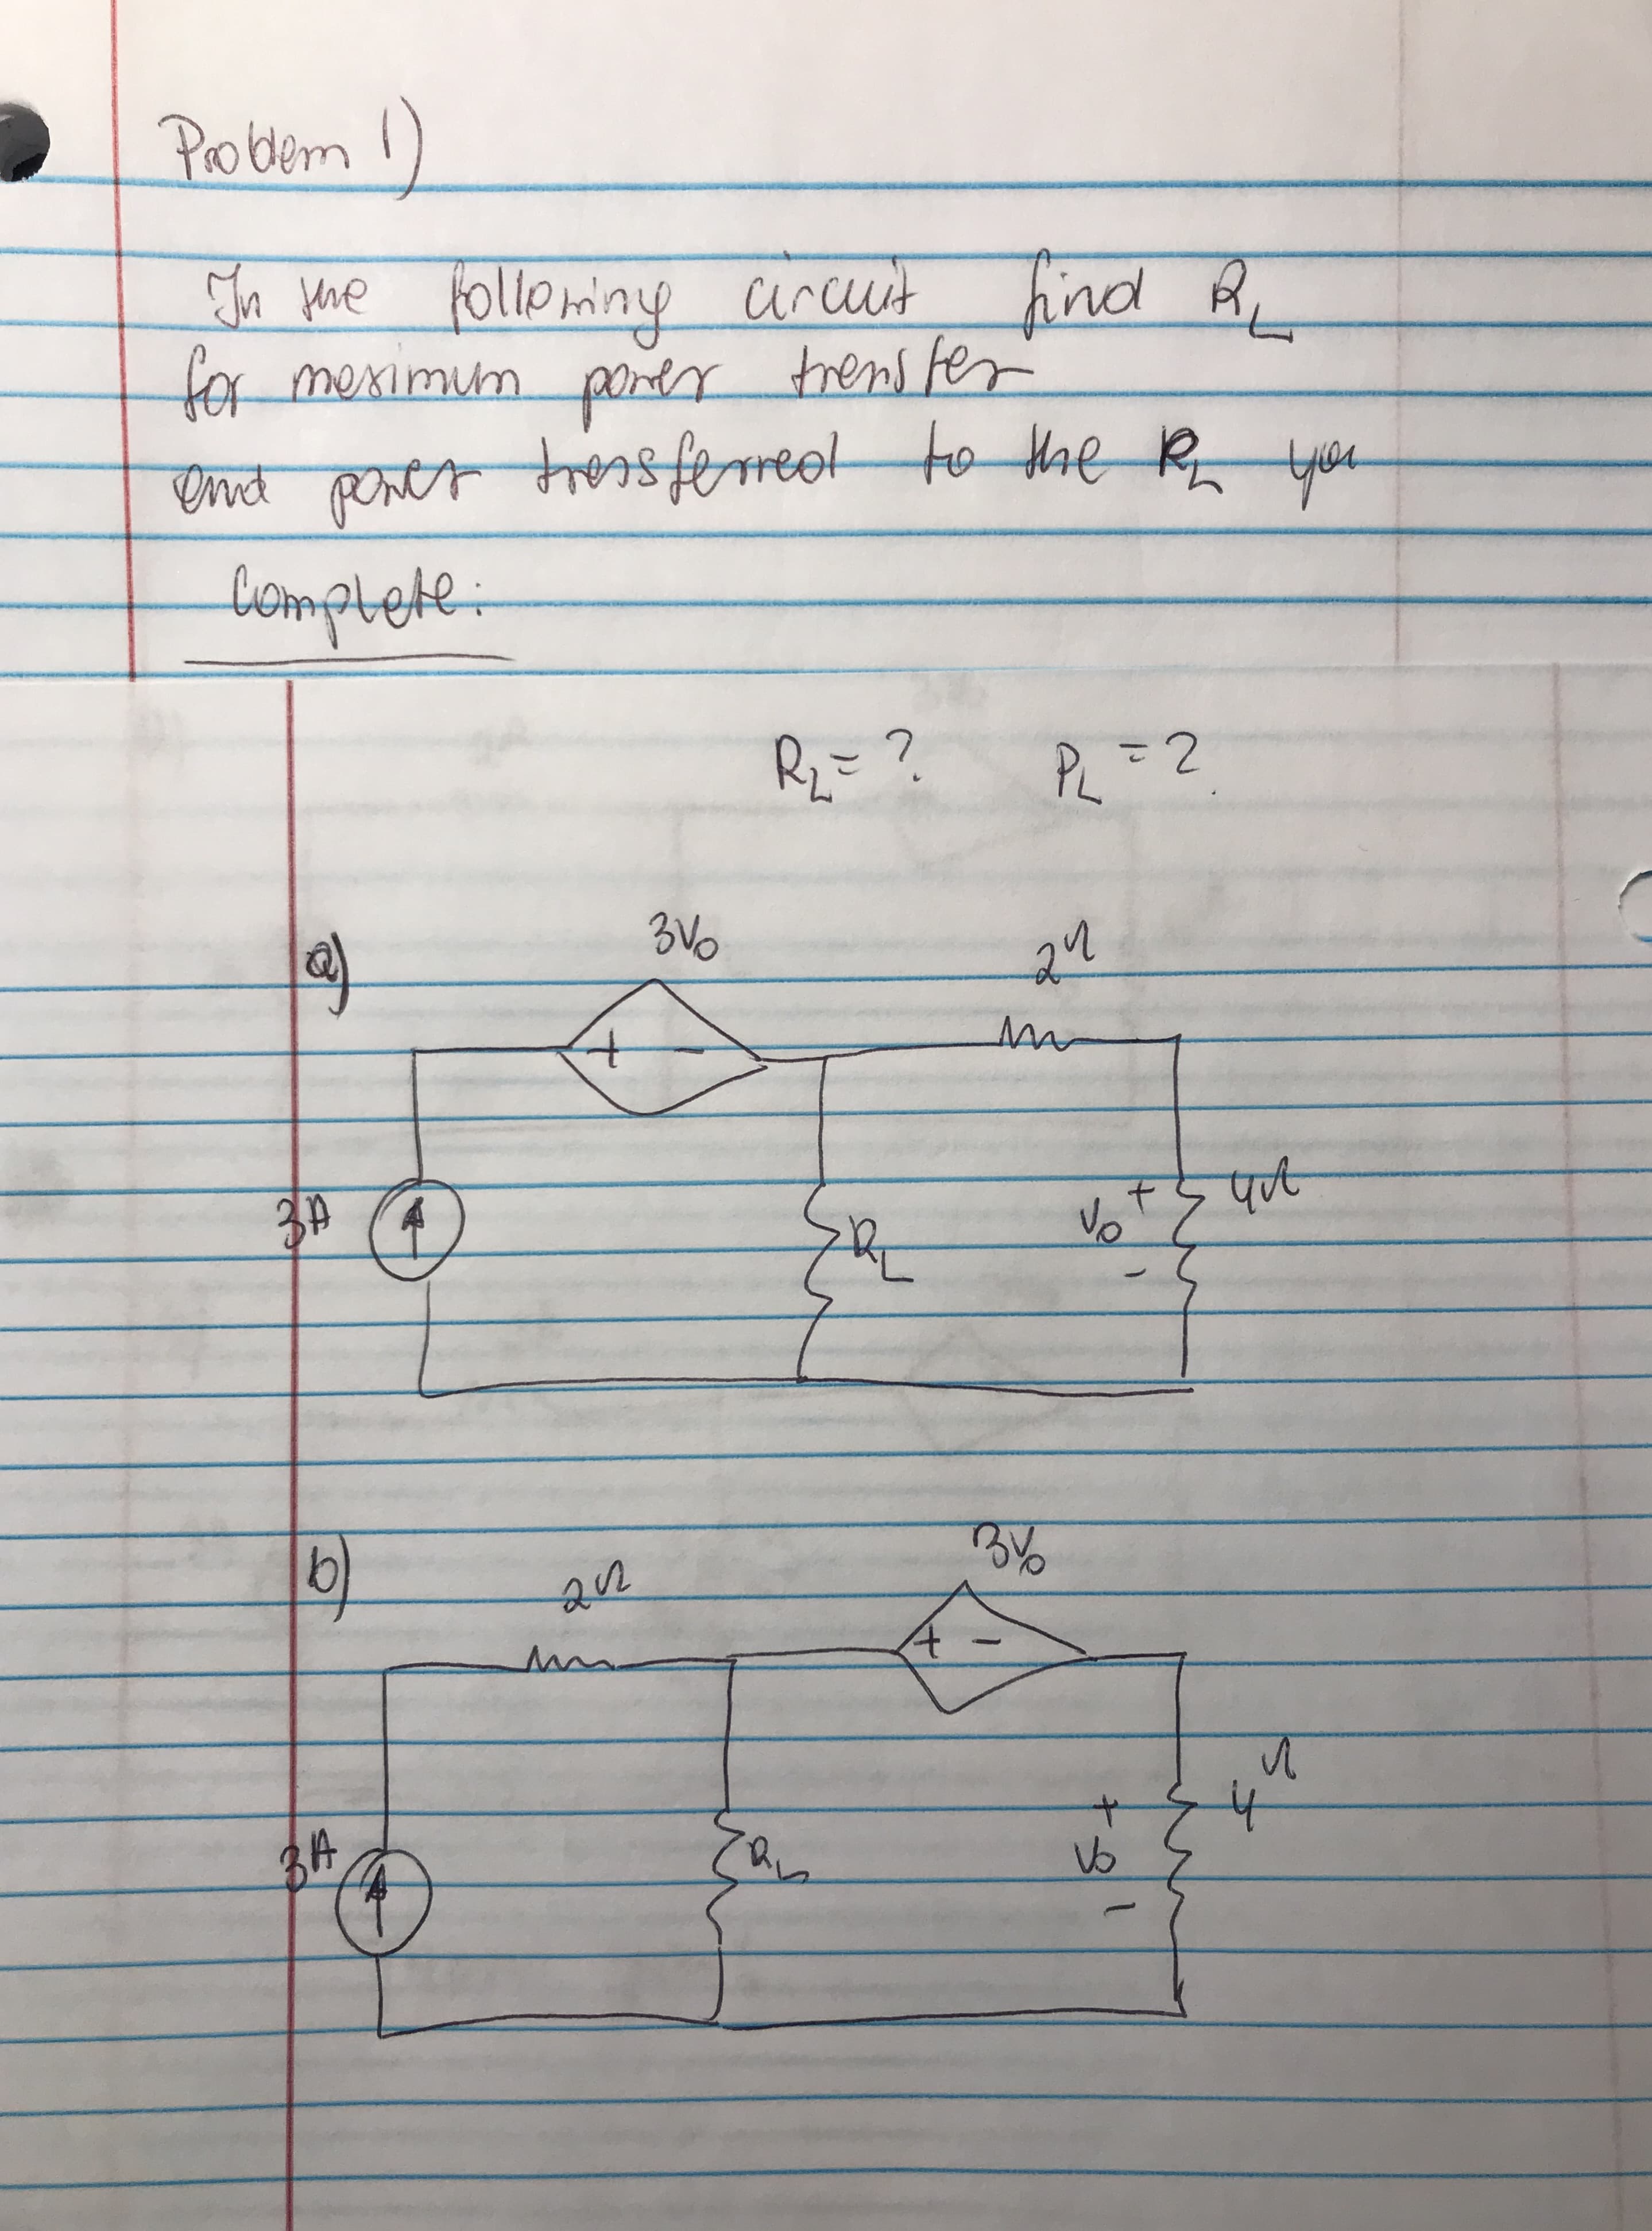 Problem 1)
In the following circuit find R_L
for maximum power transfer
and power transferred to the R_L you
Complete:
R_L = ? P_L = ?
a)
3V₀
2Ω
+ -
3A
R_L
V₀ + -
4Ω
b)
2Ω
3V₀
+ -
3A
R_L
+ V₀ -
4Ω